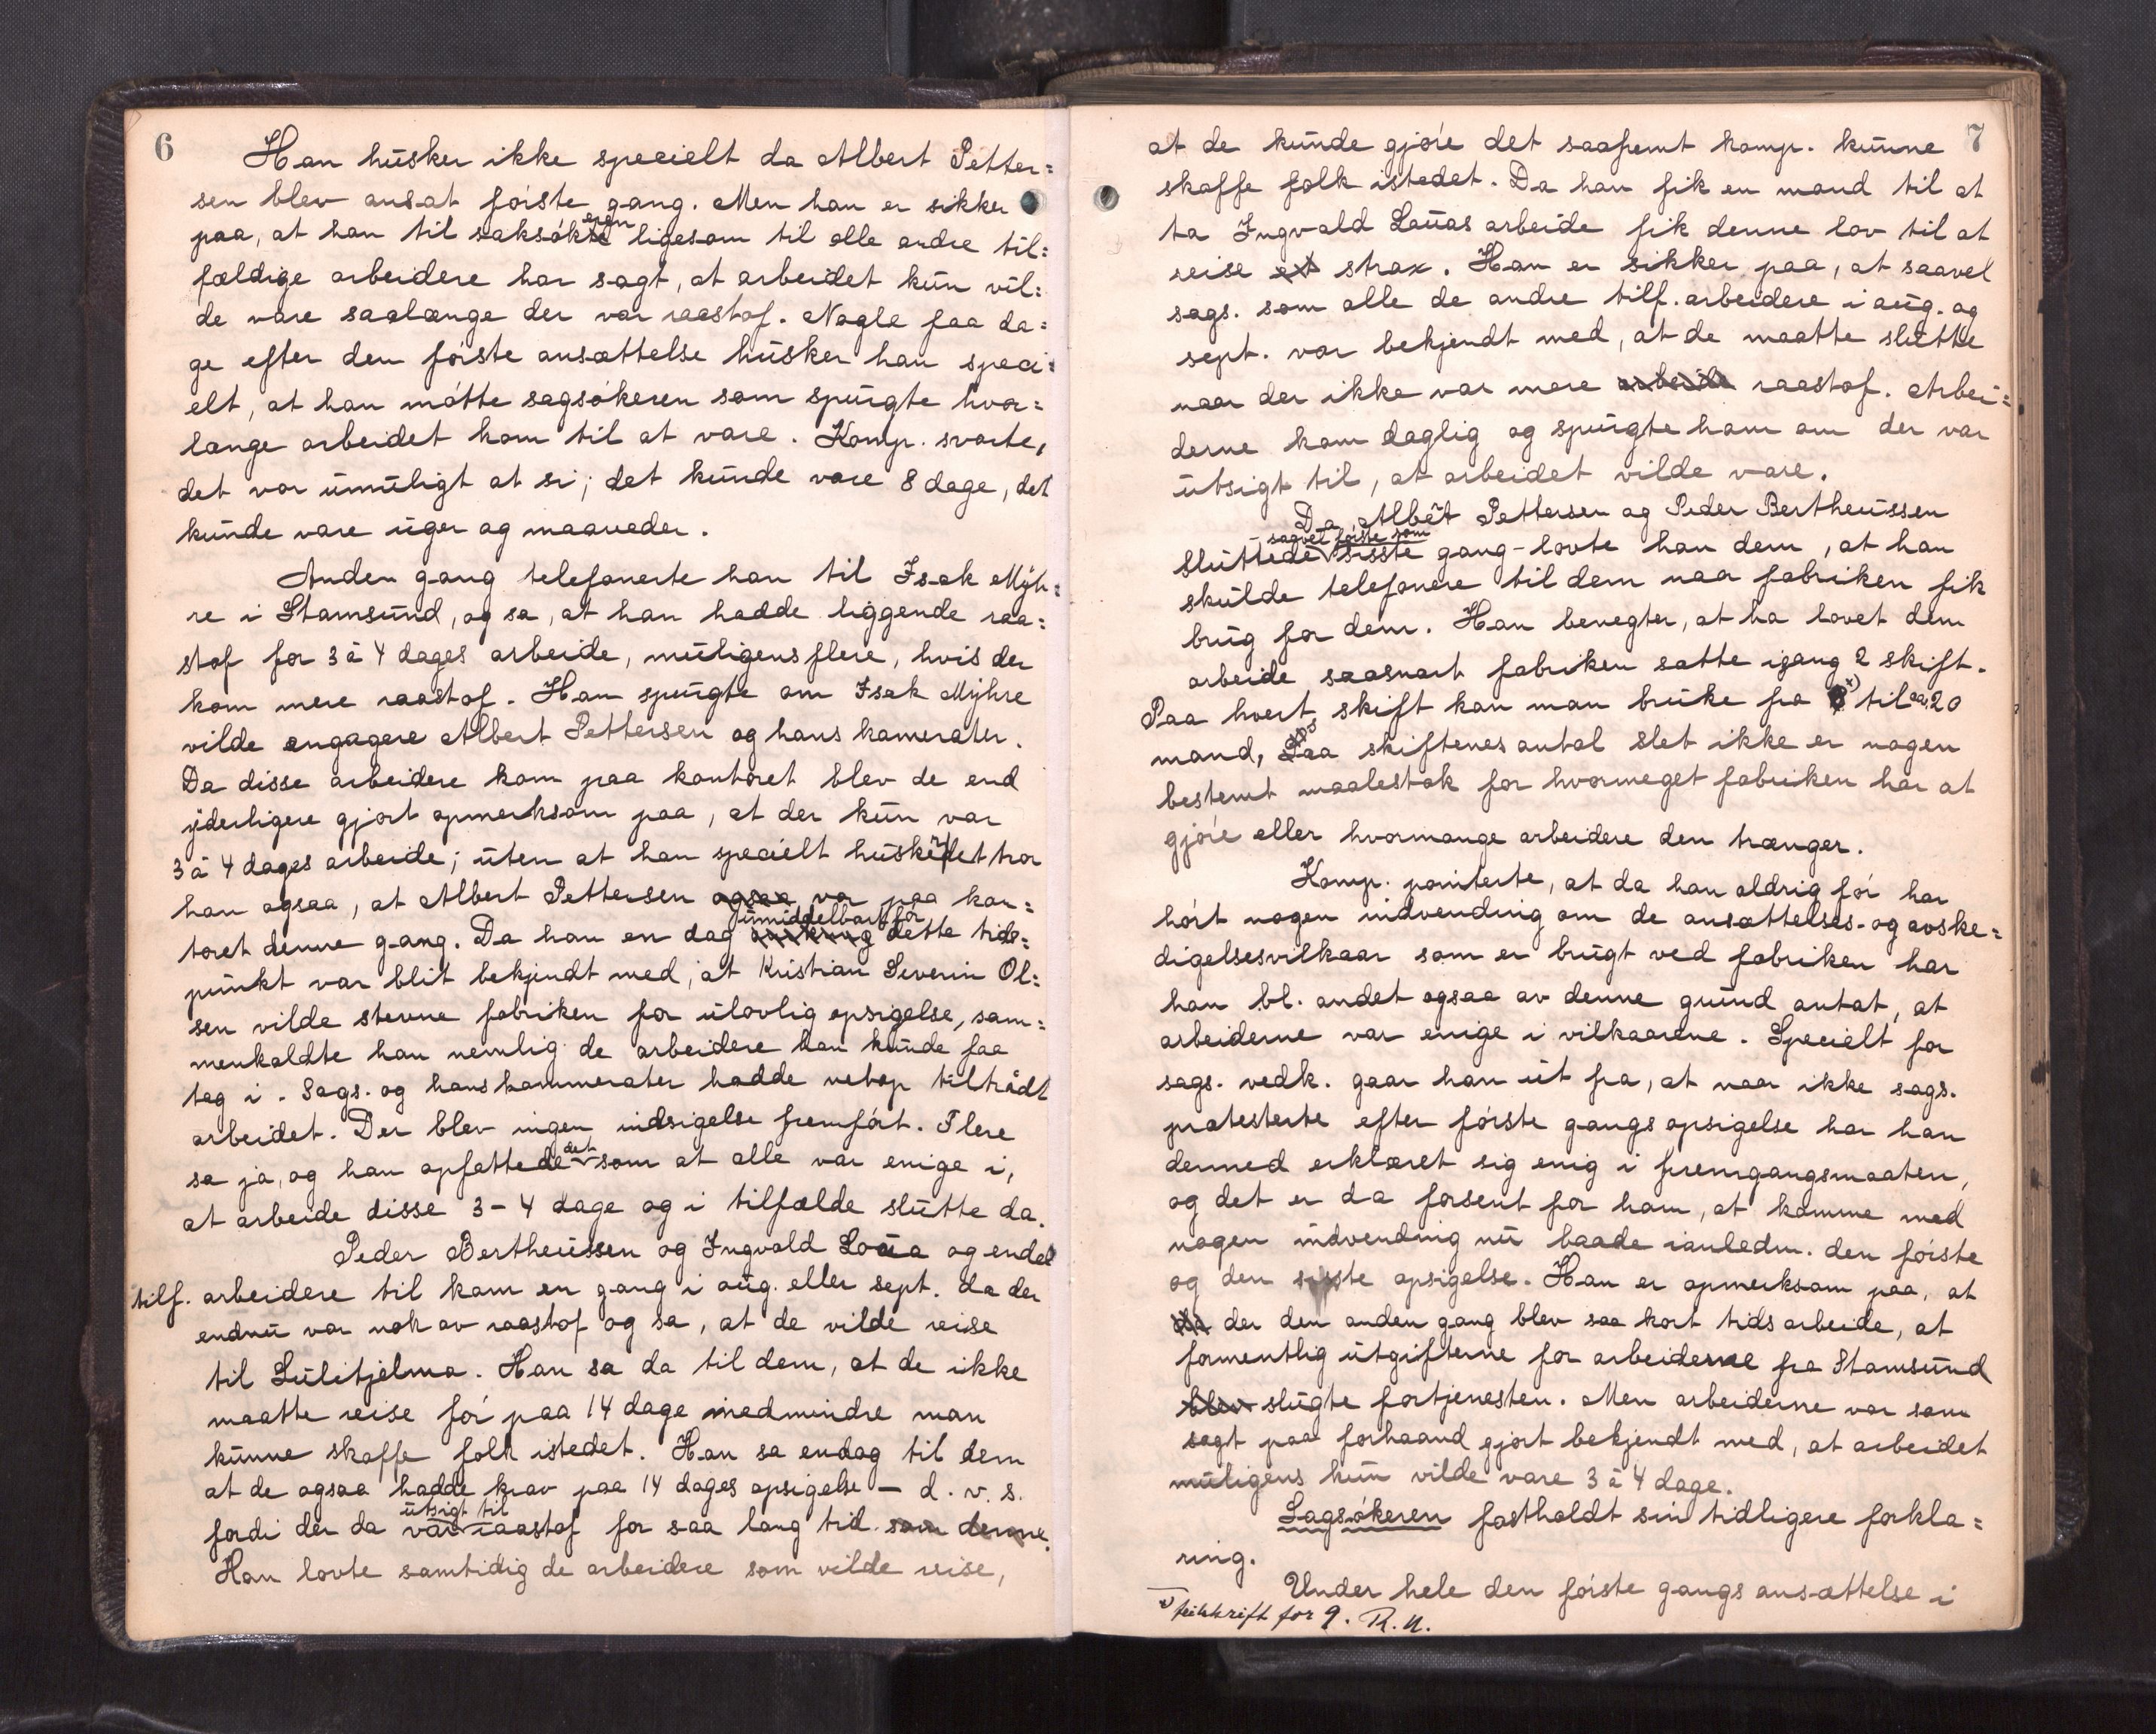 6
Han husker ikke specielt da Albert Petter=
sen blev ansat første gang. Men han er sikker
paa, at han til saksøkeren ligesom til alle andre til=
fældige arbeidere har sagt, at arbeidet kun vil=
de vare saalænge der var raastof. Nogle faa da=
ge efter den første ansættelse husker han speci=
elt, at han møtte sagsøkeren som spurgte hvor=
længe arbeidet kom til at vare. Komp. svarte,
det var umuligt at si; det kunde vare 8 dage, det
kunde vare uger og maaneder.
Anden gang telefonerte han til Isak Myh=
re i Stamsund, og sa, at han hadde liggende raa=
stof for 3 à 4 dages arbeide, muligens flere, hvis der
kom mere raastof. Han spurgte om Isak Myhre
vilde engagere Albert Pettersen og hans kamerater.
Da disse arbeidere kom paa kontoret blev de end
yderligere gjort opmerksom paa, at der kun var
3 à 4 dages arbeide; uten at han specielt husker det tror
han ogsaa, at Albert Pettersen ogsaa var paa kon=
toret denne gang. Da han en dag umiddelbart før dette tids=
punkt var blit bekjendt med, at Kristian Severin Ol=
sen vilde stevne fabriken for ulovlig opsigelse, sam=
menkaldte han nemlig de arbeidere han kunde faa
tag i. Sags. og hans kammerater hadde netop tiltrådt
arbeidet. Der blev ingen indsigelse fremført. Flere
sa ja, og han opfattede det som at alle var enige i,
at arbeide disse 3-4 dage og i tilfælde slutte da.
Peder Bertheussen og Ingvald Loua og endel
tilf. arbeidere til kom en gang i aug. eller sept. da der
endnu var nok av raastof og sa, at de vilde reise
til Sulitjelma. Han sa da til dem, at de ikke
maatte reise før paa 14 dage medmindre man
kunne skaffe folk istedet. Han sa endog til dem
at de ogsaa hadde krav paa 14 dages opsigelse – d. v. s.
fordi der da var utsigt til raastof for saa lang tid som denne.
Han lovte samtidig de arbeidere som vilde reise,
7
at de kunde gjøre det saafremt komp. kunne
skaffe folk istedet. Da han fik en mand til at
ta Ingvald Louas arbeide fik denne lov til at
reise et strax. Han er sikker paa, at saavel
sags. som alle de andre tilf. arbeidere i aug. og
sept. var bekjendt med, at de maatte slutte
naar der ikke var mere arbeide raastof. Arbei=
derne kom daglig og spurgte ham om der var
utsigt til, at arbeidet vilde vare.
Da Albert Pettersen og Peder Bertheussen
sluttede saavel første som sisste gang - lovte han dem, at han
skulde telefonere til dem naar fabriken fik
brug for dem. Han benegter, at ha lovet dem
arbeide saasnart fabriken satte igang 2 skift.
Paa hvert skift kan man bruke fra x) til ca. 20
mand, saa skiftenes antal slet ikke er nogen
bestemt maalestok for hvormeget fabriken har at
gjøre eller hvormange arbeidere den trænger.
Komp. pointerte, at da han aldrig før har
hørt nogen indvending om de ansættelses- og avske=
digelsesvilkaar som er brugt ved fabriken har
han bl. andet ogsaa av denne grund antat, at
arbeiderne var enige i vilkaarene. Specielt for
sags. vedk. gaar han ut fra, at naar ikke sags.
protesterte efter første gangs opsigelse har han
dermed erklæret sig enig i fremgangsmaaten,
og det er da forsent for ham, at komme med
nogen indvending nu baade ianledn. den første
og den sisste opsigelse. Han er opmerksom paa, at
da der den anden gang blev saa kort tids arbeide, at
formentlig utgifterne for arbeiderne fra Stamsund
blev slugte fortjenesten. Men arbeiderne var som
sagt paa forhaand gjort bekjendt med, at arbeidet
muligens kun vilde vare 3 à 4 dage.
Sagsøkeren fastholdt sin tidligere forkla=
ring.
Under hele den første gangs ansættelse i
x) feilskrift for 9. R. N.